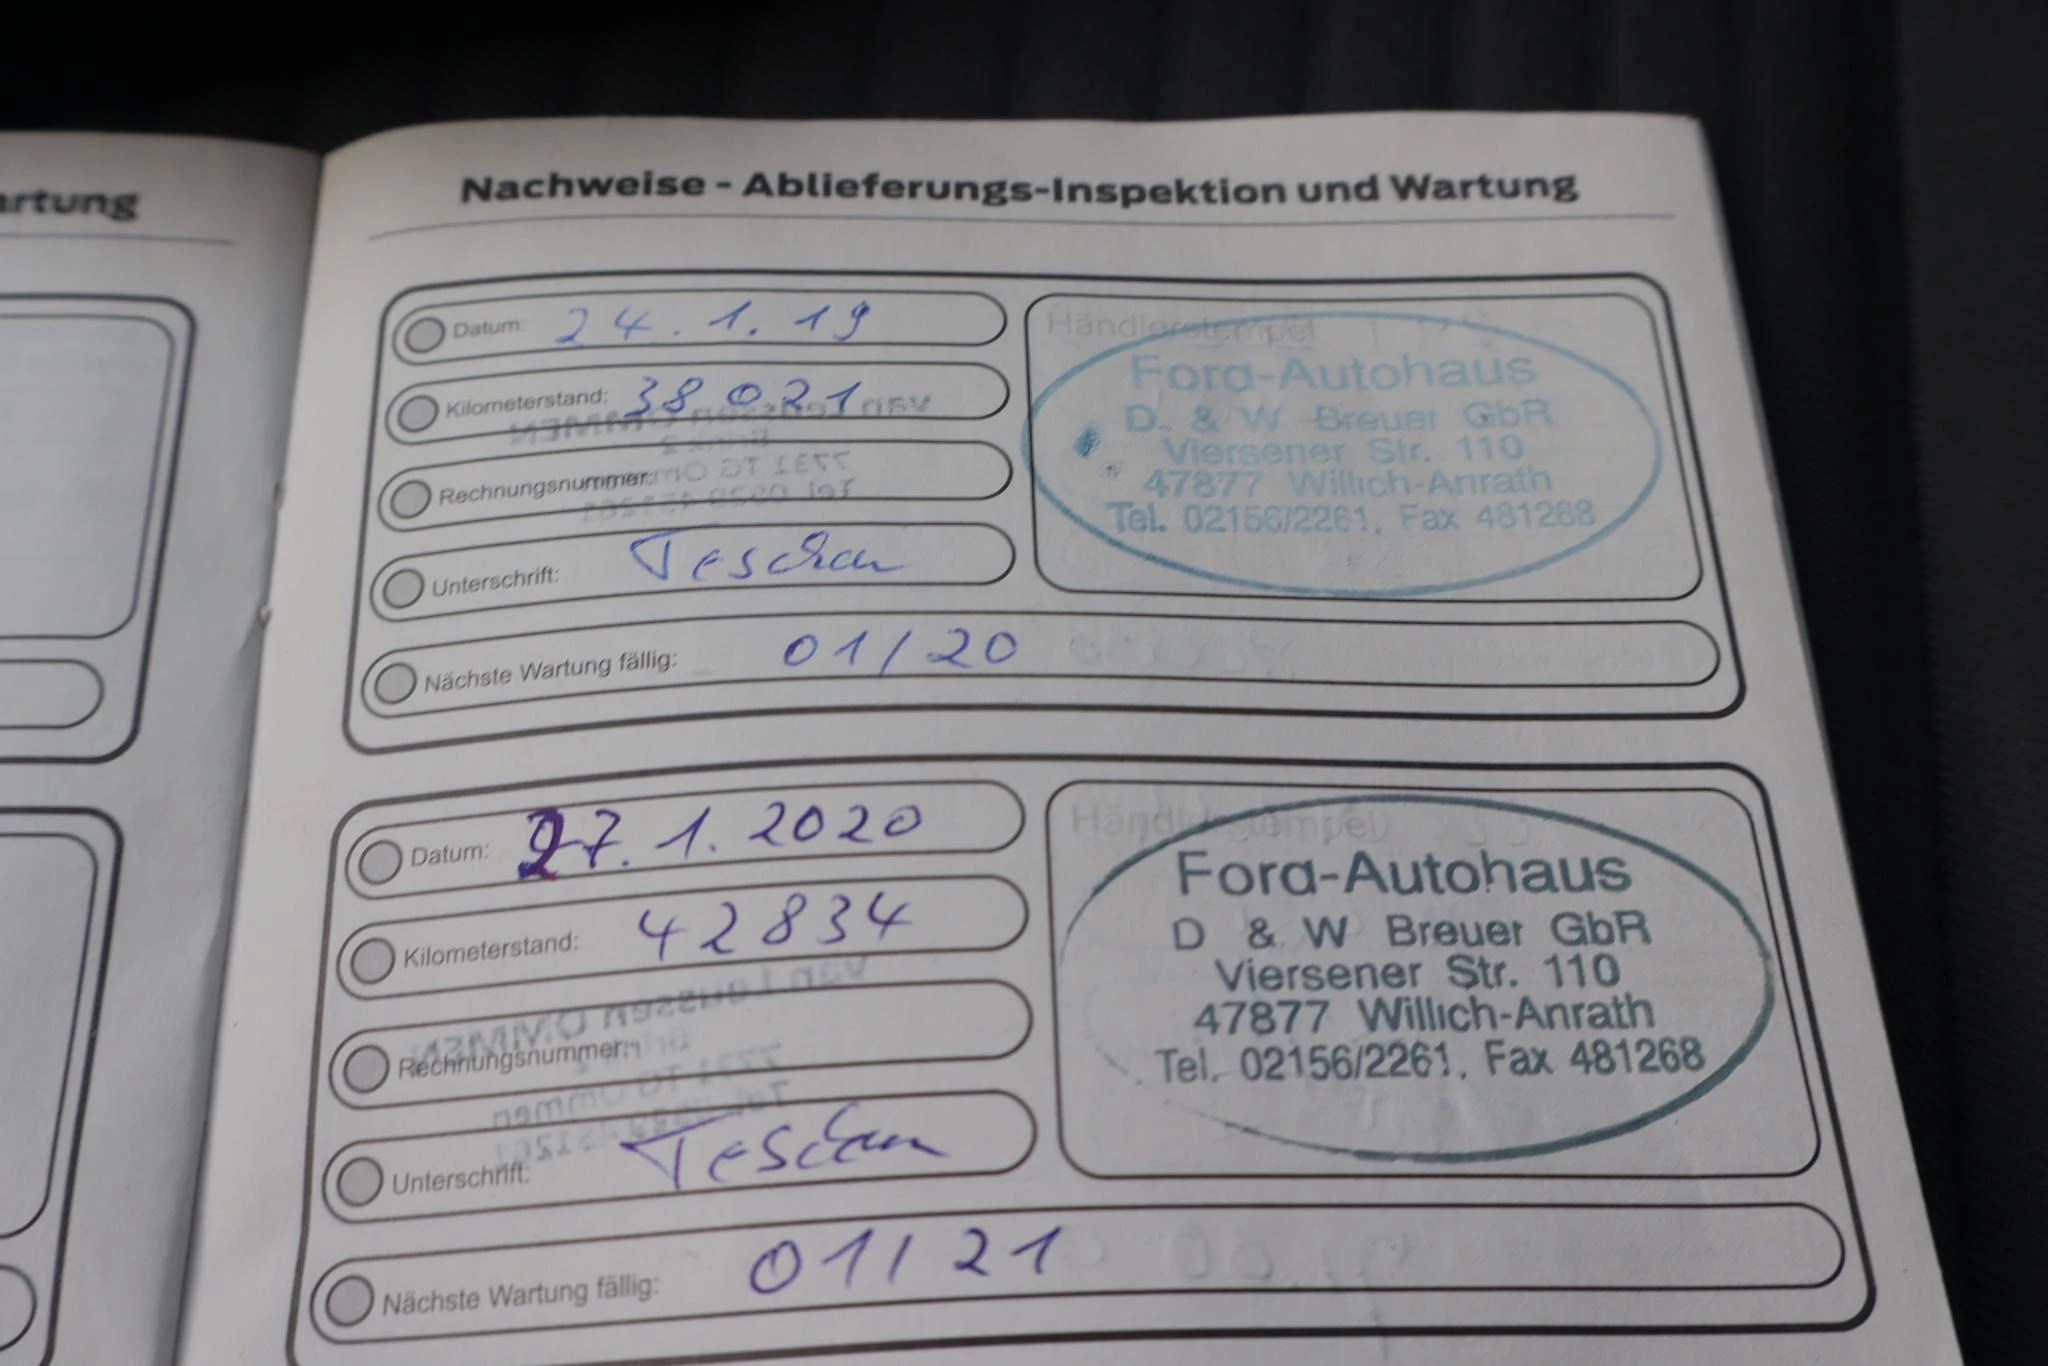 artung
Nachweise - Ablieferungs-Inspektion und Wartung
Datum: 24.1.19
Kilometerstand: 38021
Rechnungsnummer:
Unterschrift:
Nächste Wartung fällig: 01/20
Händlerstempel
Ford-Autohaus
D. & W Breuer GbR
Viersener Str. 110
47877 Willich-Anrath
Tel. 02156/2261, Fax 481268
Datum: 27.1.2020
Kilometerstand: 42834
Rechnungsnummer:
Unterschrift:
Nächste Wartung fällig: 01/21
Händlerstempel
Ford-Autohaus
D & W Breuer GbR
Viersener Str. 110
47877 Willich-Anrath
Tel. 02156/2261, Fax 481268